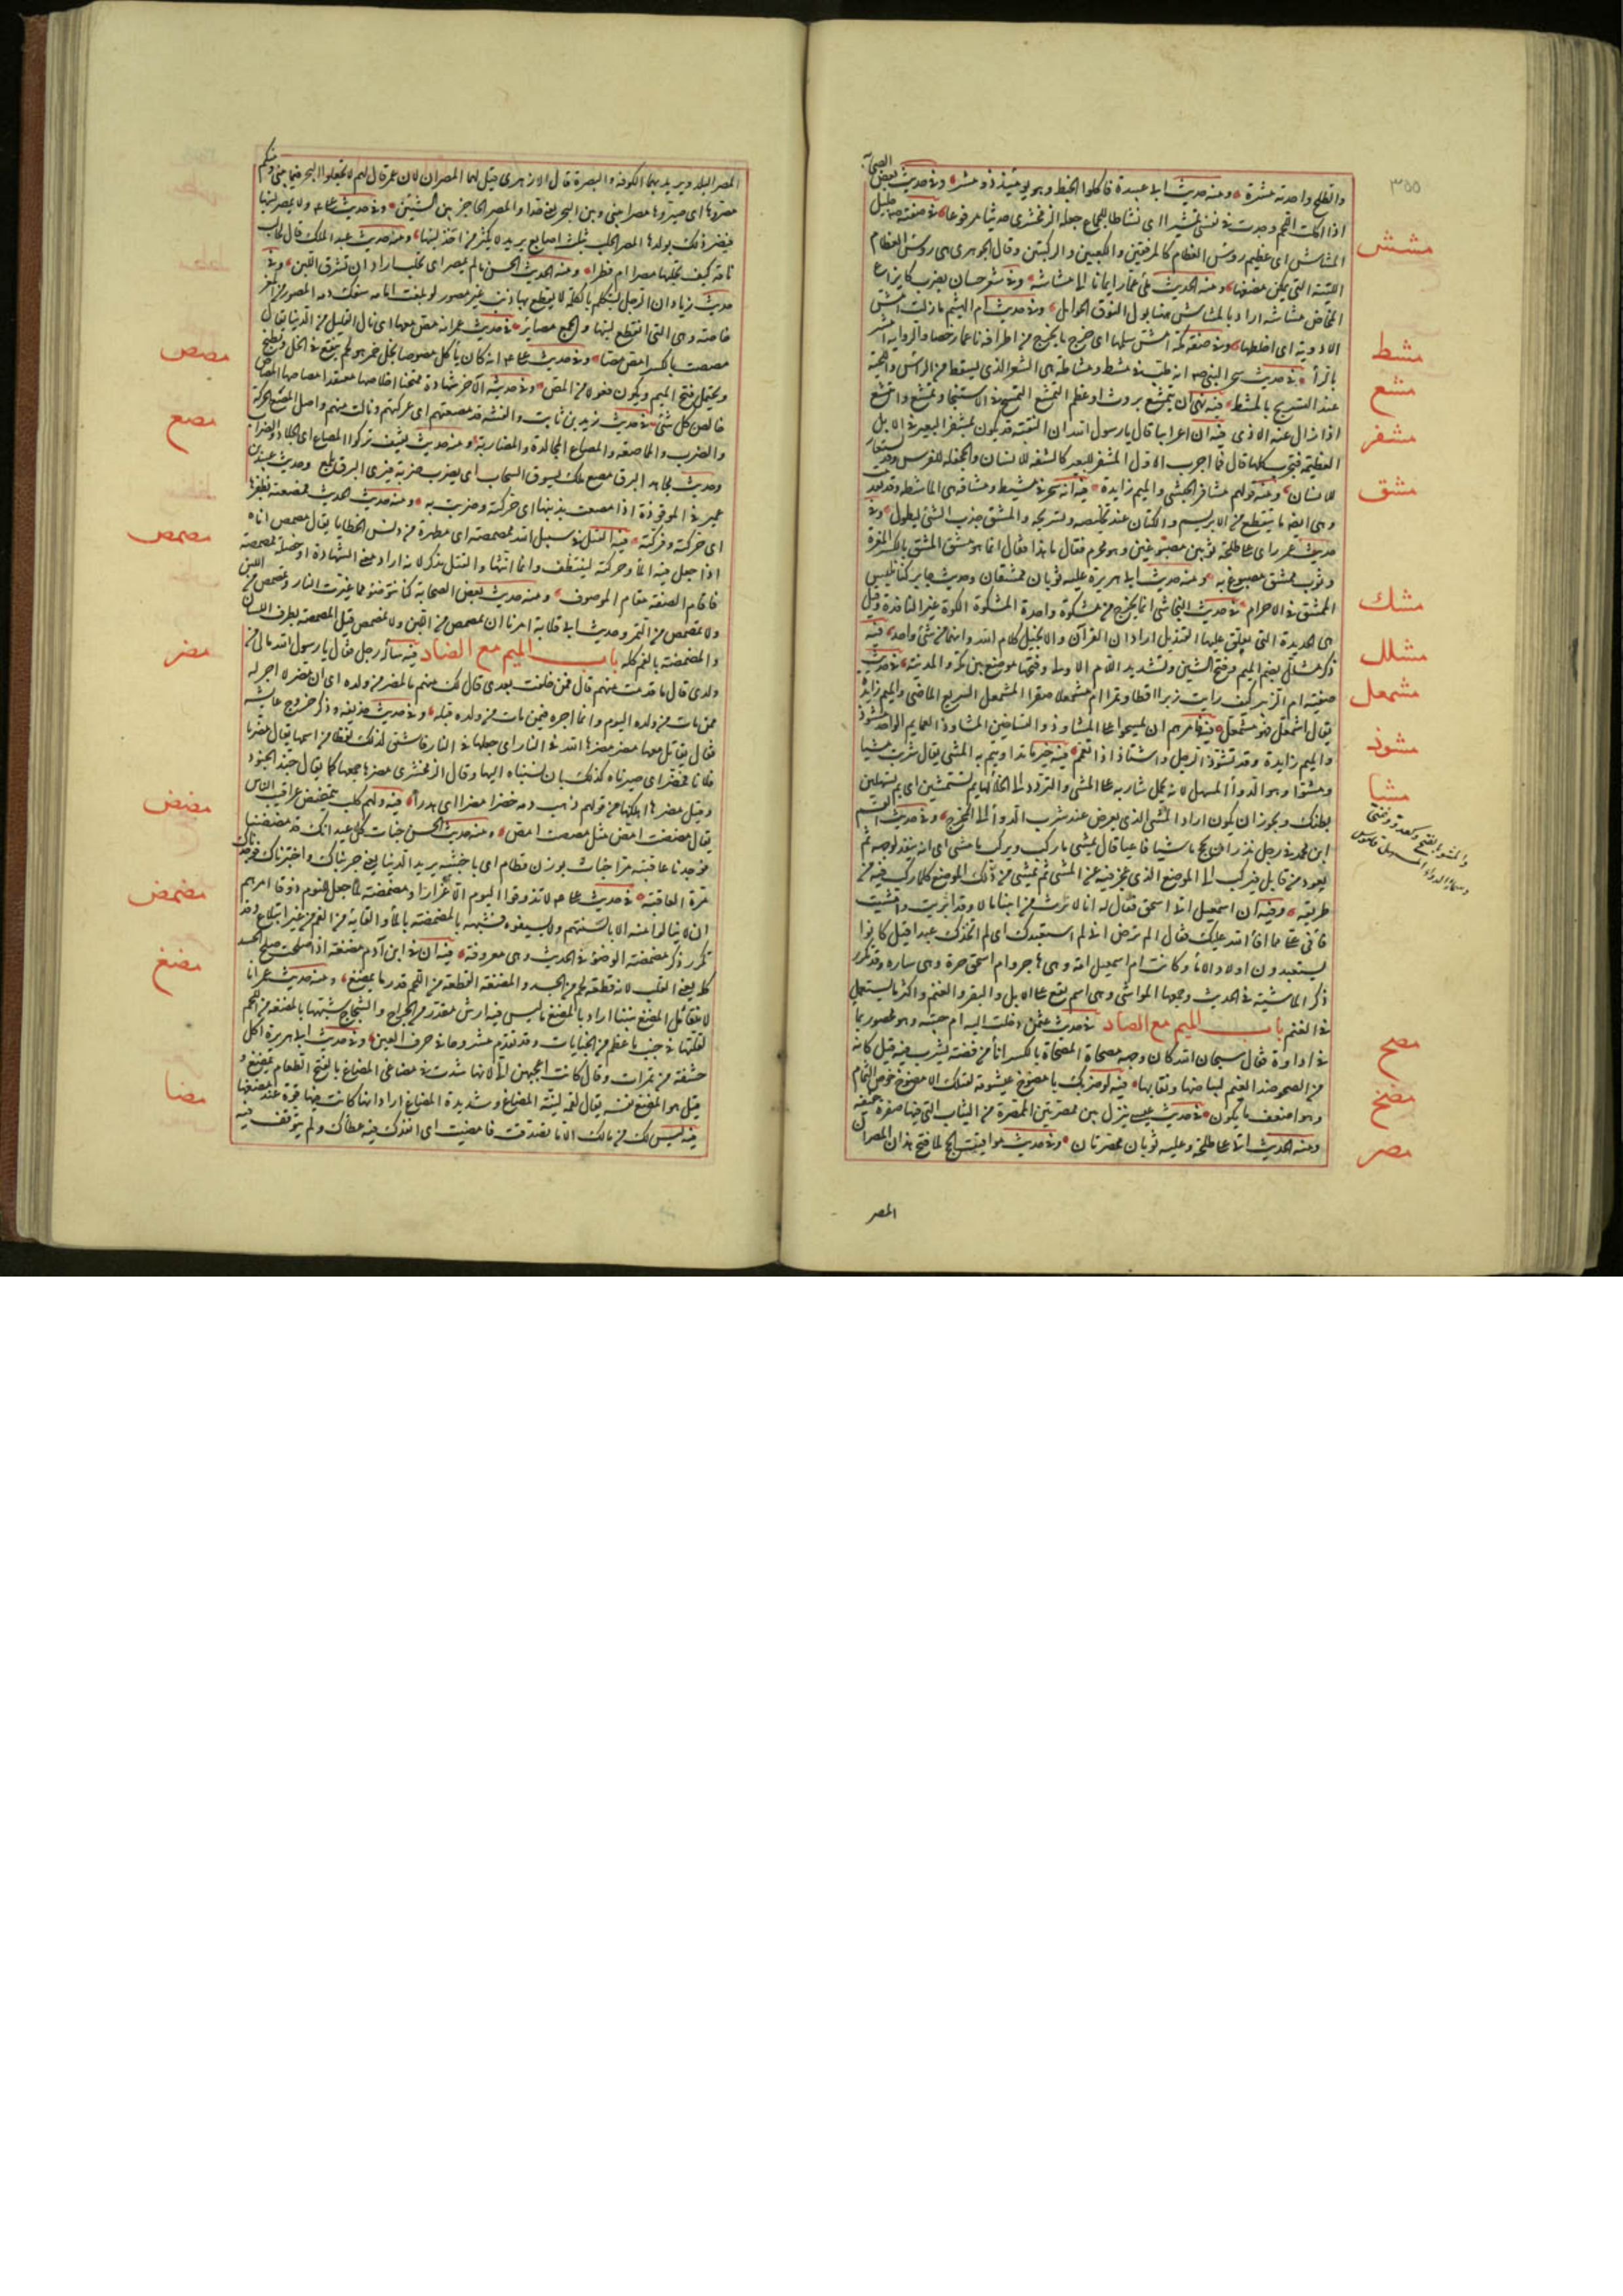 ٣٥٥
والطلح واحدته مشرة ومنه حديث ابى عبيدة فاكلوا الخبط وهو يومئذ ذو مشر وفى حديث بعض الصحابة
اذا اكلت اللحم وجدت فى نفسى تمشيرا اى نشاطا للجماع جعله الزمخشرى حديثا مرفوعا فى صفته جليل
المشاش اى عظيم رؤس العظام كالمرفقين والكعبين والركبتين وقال الجوهرى هى رؤس العظام
اللينة التى يمكن مضغها ومنه الحديث ملئ عمار ايمانا الى مشاشه وفى شعر حسان بضرب كايزاع
المخاض مشاشه اراد بالمشاش هنا بول النوق الحوامل وفى حديث ام الهيثم ما زلت امش
الادوية اى اخلطها وفى صفة مكة امش سلمها اى خرج ما يخرج من اطرافه ناعما رخصا والرواية امشر
بالراء فى حديث سحر النبى صه انه طب فى مشط ومشاطة هى الشعر الذى يسقط من الراس واللحية
عند التسريح بالمشط فيه نهى ان يتمشع بروث او عظم التمشع التمسح فى الاستنجاء وتمشع وامتشع
اذا ازال عنه الاذى فيه ان اعرابيا قال يارسول الله ان النقبة قد تكون بمشفر البعير فى الابل
العظيمة فتجرب كلها قال فما اجرب الاول المشفر للبعير كالشفة للانسان والجحفلة للفرس وقد يستعار
للانسان ومنه قولهم مشافر الحبشى والميم زايدة فيه انه سحر فى مشط ومشاقة هى المشاطة وقد تقدمت
وهى ايضا ما ينقطع من الابريسم والكتان عند تخليصه وتسريحه والمشق جذب الشئ ليطول وفى
حديث عمر راى على طلحة ثوبين مصبوغين وهو محرم فقال ما هذا فقال انما هو مشق المشق بالكسر المغرة
وثوب ممشق مصبوغ به ومنه حديث ابى هريرة عليه ثوبان ممشقان وحديث جابر كنا نلبس
الممشق فى الاحرام فى حديث النجاشى انما يخرج من مشكوة واحدة المشكوة الكوة غير النافذة وقيل
هى الحديدة التى يعلق عليها القنديل اراد ان القرآن والانجيل كلام الله وانهما من شئ واحد فيه
ذكر مشلل بضم الميم وفتح الشين وتشديد اللام الاولى وفتحها موضع بين مكة والمدينة فى حديث
صفية ام الزبير كيف رايت زبرا اقطا وتمرا ام مشمعلا صقرا المشمعل السريع الماضى والميم زايدة
يقال اشمعل فهو مشمعل فيه فامرهم ان يمسحوا على المشاوذ والتساخين المشاوذ العمايم الواحد مشوذ
والميم زايدة وقد تشوذ الرجل واشتاذ اذا تعمم فيه خير ما تداويتم به المشى يقال شربت مشيا
ومشوا وهو الدواء المسهل لانه يحمل شاربه على المشى والتردد الى الخلاء بم تستمشين اى بم تسهلين
بطنك ويجوز ان يكون اراد المشى الذى يعرض عند شرب الدواء الى المخرج وفى حديث القسم
ابن محمد فى رجل نذر ان يحج ماشيا فاعيا قال يمشى ما ركب ويركب ما مشى اى انه ينفذ لوجهه ثم
يعود من قابل فيركب الى الموضع الذى عجز فيه عن المشى ثم يمشى من ذلك الموضع كلما ركب فيه من
طريقه وفيه ان اسمعيل اتى اسحق فقال له انا لم نرث من ابينا مالا وقد اثريت وامشيت
فافئ على مما افاء الله عليك فقال الم ترض انى لم استعبدك اى لم اتخذك عبدا قيل كانوا
يستعبدون اولاد الاماء وكانت ام اسمعيل امة وهى هاجر وام اسحق حرة وهى سارة وقد تكرر
ذكر الماشية فى الحديث وجمعها المواشى وهى اسم يقع على الابل والبقر والغنم واكثر ما يستعمل
فى الغنم باب الميم مع الصاد فى حديث عثمن دخلت اليه ام حبيبة وهو محصور بماء
فى اداوة فقال سبحان الله كان وجهه مصحاة المصحاة بالكسر اناء من فضة يشرب فيه قيل كانه
من الصحو ضد الغيم لبياضها ونقائها فيه لو ضربك بامصوخ عيشومة لقتلك الامصوخ خوص الثمام
وهو اضعف ما يكون فى حديث عيسى ينزل بين ممصرتين الممصرة من الثياب التى فيها صفرة خفيفة
ومنه الحديث اتى على طلحة وعليه ثوبان ممصرتان وفى حديث مواقيت الحج لما فتح هذان المصران
المصر
مشش
مشط
مشع
مشفر
مشق
مشك
مشلل
مشمعل
مشوذ
مشا
مصح
مصخ
مصر
المصر البلد ويريد بهما الكوفة والبصرة قال الازهرى قيل لهما المصران لان عمر قال لهم لا تجعلوا البحر فيما بينى وبينكم
مصروها اى صيروها مصرا بينى وبين البحر يعنى حدا والمصر الحاجز بين الشيئين وفى حديث على ولا يمصر لبنها
فيضر ذلك بولدها المصر الحلب بثلث اصابع يريد لا يكثر من اخذ لبنها ومنه حديث عبد الملك قال لحالب
ناقة كيف تحلبها مصرا ام فطرا ومنه الحديث الحسن ما لم تمصر اى تحلب اراد ان تسرق اللبن وفى
حديث زياد ان الرجل ليتكلم بالكلمة لا يقطع بها ذنب عنز مصور لو بلغت امامه سفك دمه المصور من المعز
خاصة وهى التى انقطع لبنها والجمع مصائر فى حديث عمر انه مص منها اى نال القليل من الدنيا يقال
مصصت بالكسر امص مصا وفى حديث على انه كان ياكل مصوصا بخل خمر هو لحم ينقع فى الخل ويطبخ
ويحتمل فتح الميم ويكون فعولا من المص وفى حديثه الآخر شهادة ممتحنا اخلاصها معتقدا مصاصها المصاص
خالص كل شئ فى حديث زيد بن ثابت والفتنة قد مصعتهم اى عركتهم ونالت منهم واصل المصع الحركة
والضرب والمماصعة والمصاع المجالدة والمضاربة ومنه حديث ثقيف تركوا المصاع اى الجلاد والضراب
وحديث مجاهد البرق مصع ملك يسوق السحاب اى يضرب ضربة فيرى البرق يلمع وحديث عبيد بن
عمير فى الموقوذة اذا مصعت بذنبها اى حركته وضربت به ومنه حديث الحديث فمصعته بظفرها
اى حركته وفركته فيه القتل فى سبيل الله ممصمصة اى مطهرة من دنس الخطايا يقال مصمص اناءه
اذا جعل فيه الماء وحركه ليتنظف وانما انثها والقتل مذكر لانه اراد معنى الشهادة او خصلة ممصمصة
فاقام الصفة مقام الموصوف ومنه حديث بعض الصحابة كنا نتوضؤ مما غيرت النار ونمصمص من اللبن
ولا نمصمص من التمر وحديث ابى قلابة امرنا ان نمصمص من اللبن ولا نمصمص قيل المصمصة بطرف اللسان
والمضمضة بالفم كله باب الميم مع الضاد فيه ساله رجل فقال يارسول الله مالى من
ولدى قال ما قدمت منهم قال فمن خلفت بعدى قال لك منهم ما لمضر من ولده اى ان مضر لا اجر له
فيمن مات من ولده اليوم وانما اجره فيمن مات من ولده قبله وفى حديث حذيفة وذكر خروج عايشة
فقال يقاتل معها مضر مضرها الله فى النار اى جعلها فى النار فاشتق لذلك لفظا من اسمها يقال مضرنا
فلانا فتمضر اى صيرناه كذلك بان نسبناه اليها وقال الزمخشرى مضرها جمعها كما يقال جند الجنود
وقيل مضرها اهلكها من قولهم ذهب دمه خضرا مضرا اى هدرا فيه ولهم كلب يتمضمض عراقيب الناس
يقال مضضت امض مثل مصصت امص ومنه حديث الحسن خباث كل عيدانك قد مضضنا
فوجدنا عاقبته مرا خباث بوزن قطام اى يا خبيثة يريد الدنيا يعنى جربناك واختبرناك فوجدناك
مرة العاقبة فى حديث على لا تذوقوا النوم الا غرارا ومضمضة لما جعل للنوم ذوقا امرهم
ان لا ينالوا منه الا بالسنتهم ولا يسيغوه فشبهه بالمضمضة بالماء والقائه من الفم من غير ابتلاع وقد
تكرر ذكر مضمضة الوضوء فى الحديث وهى معروفة فيه ان فى ابن آدم مضغة اذا صلحت صلح الجسد
كله يعنى القلب لانه قطعة لحم من الجسد والمضغة القطعة من اللحم قدر ما يمضغ ومنه حديث عمر انا
لا نتعاقل المضغ بيننا اراد بالمضغ ما ليس فيه ارش مقدر من الجراح والشجاج شبهها بالمضغة من اللحم
لقلتها فى جنب ما عظم من الجنايات وقد تقدم مشروحا فى حرف العين وفى حديث ابى هريرة اكل
حشفة من تمرات وقال كانت اعجبهن الى لانها شدت فى مضاغى المضاغ بالفتح الطعام يمضغ و
قيل هو المضغ نفسه يقال لقمة لينة المضاغ وشديدة المضاغ اراد انها كانت فيها قوة عند مضغها
فيه ليس لك من مالك الا ما تصدقت فامضيت اى انفذت فيه عطاك ولم يتوقف فيه
مصص
مصع
مصمص
مضر
مضض
مضمض
مضغ
مضا